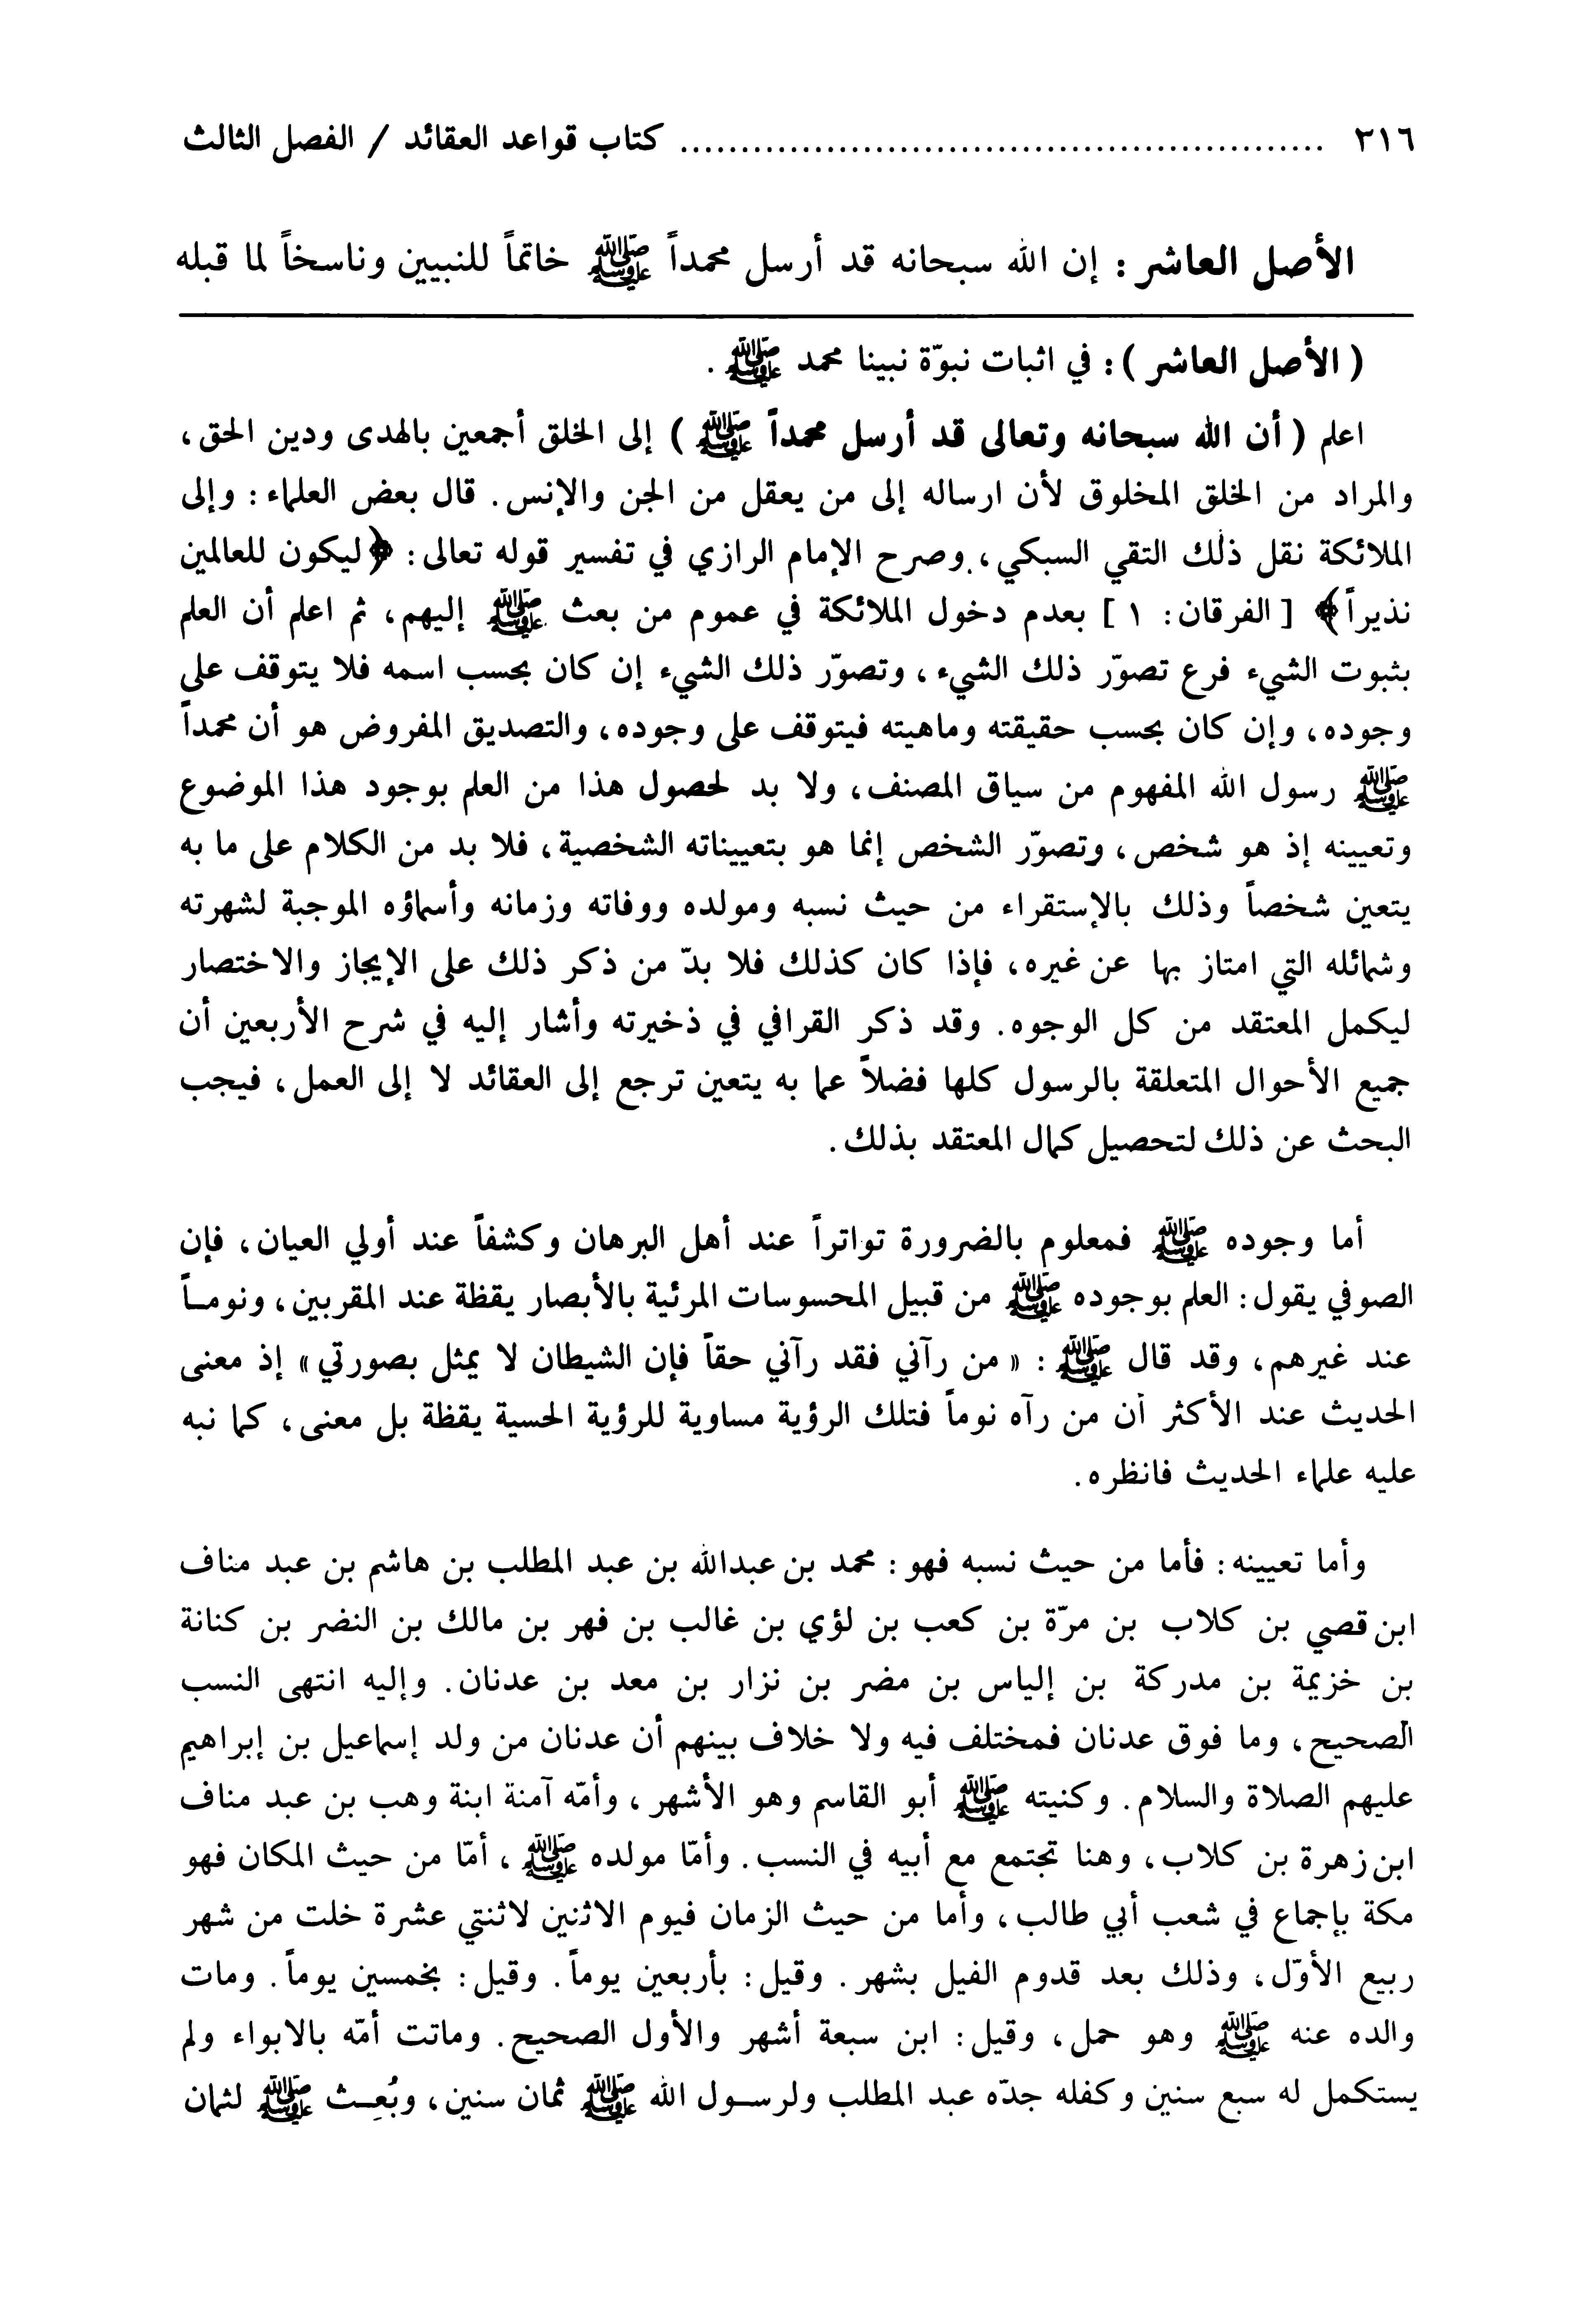 ٣١٦ ..................................................... كتاب قواعد العقائد / الفصل الثالث
الأصل العاشر : إن الله سبحانه قد أرسل محمداً ﷺ خاتماً للنبيين وناسخاً لما قبله
( الأصل العاشر ): في اثبات نبوّة نبينا محمد ﷺ .
اعلم ( أن الله سبحانه وتعالى قد أرسل محمداً ﷺ ) إلى الخلق أجمعين بالهدى ودين الحق،
والمراد من الخلق المخلوق لأن ارساله إلى من يعقل من الجن والإنس. قال بعض العلماء: وإلى
الملائكة نقل ذلك التقي السبكي، وصرح الإمام الرازي في تفسير قوله تعالى: ﴿ليكون للعالمين
نذيراً﴾ [ الفرقان: ١ ] بعدم دخول الملائكة في عموم من بعث ﷺ إليهم، ثم اعلم أن العلم
بثبوت الشيء فرع تصوّر ذلك الشيء، وتصوّر ذلك الشيء إن كان بحسب اسمه فلا يتوقف على
وجوده، وإن كان بحسب حقيقته وماهيته فيتوقف على وجوده، والتصديق المفروض هو أن محمداً
ﷺ رسول الله المفهوم من سياق المصنف، ولا بد لحصول هذا من العلم بوجود هذا الموضوع
وتعيينه إذ هو شخص، وتصوّر الشخص إنما هو بتعييناته الشخصية، فلا بد من الكلام على ما به
يتعين شخصاً وذلك بالإستقراء من حيث نسبه ومولده ووفاته وزمانه وأسماؤه الموجبة لشهرته
وشمائله التي امتاز بها عن غيره، فإذا كان كذلك فلا بدّ من ذكر ذلك على الإيجاز والاختصار
ليكمل المعتقد من كل الوجوه. وقد ذكر القرافي في ذخيرته وأشار إليه في شرح الأربعين أن
جميع الأحوال المتعلقة بالرسول كلها فضلاً عما به يتعين ترجع إلى العقائد لا إلى العمل، فيجب
البحث عن ذلك لتحصيل كمال المعتقد بذلك.
أما وجوده ﷺ فمعلوم بالضرورة تواتراً عند أهل البرهان وكشفاً عند أولي العيان، فإن
الصوفي يقول: العلم بوجوده ﷺ من قبيل المحسوسات المرئية بالأبصار يقظة عند المقربين، ونومـاً
عند غيرهم، وقد قال ﷺ : « من رآني فقد رآني حقاً فإن الشيطان لا يمثل بصورتي» إذ معنى
الحديث عند الأكثر أن من رآه نوماً فتلك الرؤية مساوية للرؤية الحسية يقظة بل معنى، كما نبه
عليه علماء الحديث فانظره.
وأما تعيينه: فأما من حيث نسبه فهو: محمد بن عبدالله بن عبد المطلب بن هاشم بن عبد مناف
ابن قصي بن كلاب بن مرّة بن كعب بن لؤي بن غالب بن فهر بن مالك بن النضر بن كنانة
بن خزيمة بن مدركة بن إلياس بن مضر بن نزار بن معد بن عدنان. وإليه انتهى النسب
الصحيح، وما فوق عدنان فمختلف فيه ولا خلاف بينهم أن عدنان من ولد إسماعيل بن إبراهيم
عليهم الصلاة والسلام. وكنيته ﷺ أبو القاسم وهو الأشهر، وأمّه آمنة ابنة وهب بن عبد مناف
ابن زهرة بن كلاب، وهنا تجتمع مع أبيه في النسب. وأمّا مولده ﷺ ، أمّا من حيث المكان فهو
مكة بإجماع في شعب أبي طالب، وأما من حيث الزمان فيوم الاثنين لاثنتي عشرة خلت من شهر
ربيع الأوّل، وذلك بعد قدوم الفيل بشهر. وقيل: بأربعين يوماً. وقيل: بخمسين يوماً. ومات
والده عنه ﷺ وهو حمل، وقيل: ابن سبعة أشهر والأول الصحيح. وماتت أمّه بالابواء ولم
يستكمل له سبع سنين وكفله جدّه عبد المطلب ولرسـول الله ﷺ ثمان سنين، وبُعِـث ﷺ لثمان